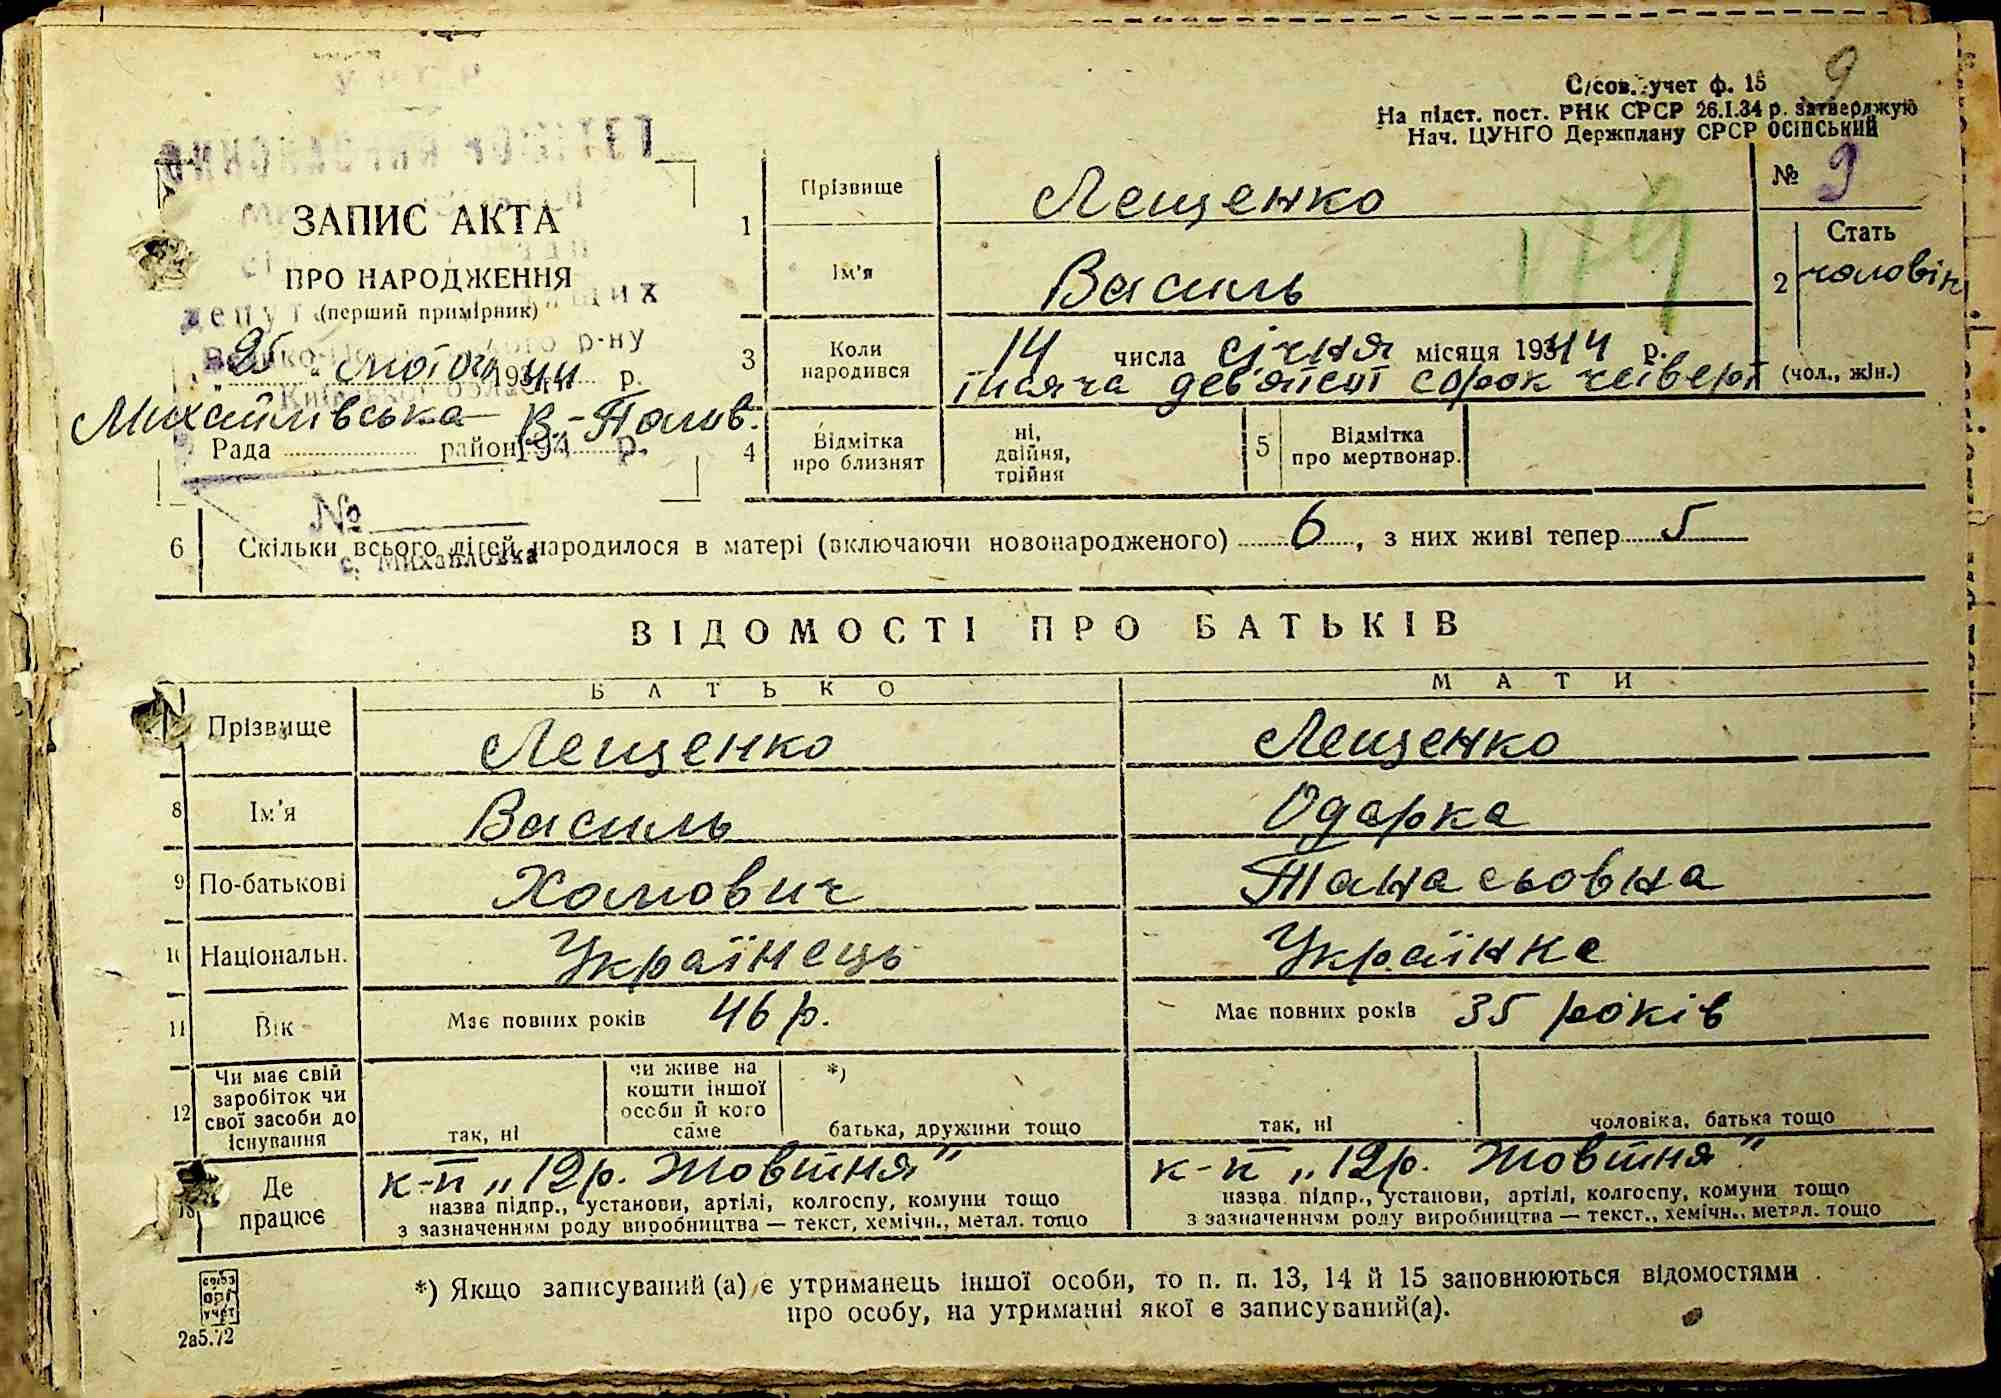 9
С/сов. учет ф. 15
На підст. пост. РНК СРСР 26.I.34 р. затверджую
Нач. ЦУНГО Держплану СРСР ОСІНСЬКИЙ
ЗАПИС АКТА
ПРО НАРОДЖЕННЯ
(перший примірник)
„25 лютого 1934 44 р.
Михайлівська В.-Полов.
Рада район
194 р.
№
с. Михайловка
1 Прізвище Лещенко
№ 9
Ім'я Василь
179
2 Стать
чоловік
(чол., жін.)
3 Коли народився 14 числа січня місяця 193 44 р.
тисяча дев'ятсот сорок четверт
4 Відмітка про близнят ні, двійня, трійня
5 Відмітка про мертвонар.
6 Скільки всього дітей народилося в матері (включаючи новонародженого) 6, з них живі тепер 5
ВІДОМОСТІ ПРО БАТЬКІВ
БАТЬКО МАТИ
Прізвище Лещенко Лещенко
8 Ім'я Василь Одарка
9 По-батькові Хомович Танасьовна
10 Національн. Українець Українка
11 Вік Має повних років 46 р. Має повних років 35 років
12 Чи має свій заробіток чи свої засоби до існування
так, ні
чи живе на кошти іншої особи й кого саме
*)
батька, дружини тощо
так, ні
чоловіка, батька тощо
13 Де працює
к-п „12 р. Жовтня" к-п „12 р. Жовтня"
назва підпр., установи, артілі, колгоспу, комуни тощо назва підпр., установи, артілі, колгоспу, комуни тощо
з зазначенням роду виробництва — текст, хемічн., метал. тощо з зазначенням роду виробництва — текст., хемічн., метал. тощо
*) Якщо записуваний (а) є утриманець іншої особи, то п. п. 13, 14 й 15 заповнюються відомостями
про особу, на утриманні якої є записуваний(а).
союз
орг
учет
2а5.72